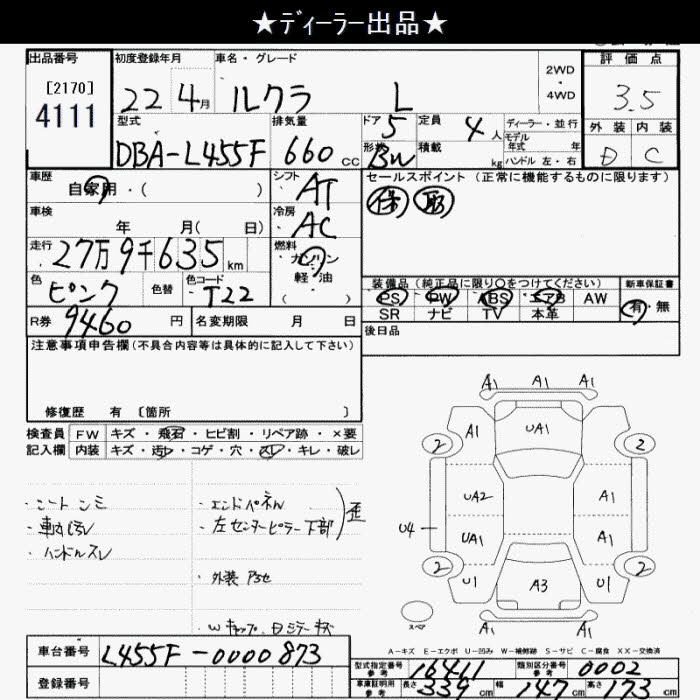 ★ディーラー出品★
出品番号
[2170]
4111
初度登録年月
22年4月
車名・グレード
ルクラ L
2WD
・
4WD
評価点
3.5
外装 内装
D C
型式
DBA-L455F
排気量
660cc
ドア
5
定員
4人
形状
BW
積載
kg
ディーラー・並行
モデル
年式 年
ハンドル 左・右
車歴
自家用・( )
シフト
AT
セールスポイント (正常に機能するものに限ります)
保 取
車検
年 月( 日)
冷房
AC
走行
27万9千635km
燃料
・ガソリン
・軽・油
( )
色
ピンク
色替
色コード
T22
装備品(純正品に限り○をつけてください)
PS PW ABS エアB AW
SR ナビ TV 本革
新車保証書
有・無
R券
9460円
名変期限 月 日
後日品
注意事項申告欄(不具合内容等は具体的に記入して下さい)
修復歴 有 〔箇所 〕
検査員 FW キズ・飛石・ヒビ割・リペア跡・×要
記入欄 内装 キズ・汚レ・コゲ・穴・スレ・キレ・破レ
・シートシミ
・車内汚レ
・ハンドルスレ
・エンドパネル
・左センターピラー下部
)歪
・外装アセ
・Wキャップ、
A1 A1 A1
A1 UA1
2 2
UA2 A1
U4 UA1 A1
2 2
U1 A3 U1
A1 A1 A1
スペア
A-キズ E-エクボ U-凹み W-補修跡 S-サビ C-腐食 XX-交換済
車台番号
L455F-0000873
登録番号
型式指定番号
参考
16411
類別区分番号
参考
0002
車庫証明用
参考
長さ 339cm 幅 147cm 高さ 173cm